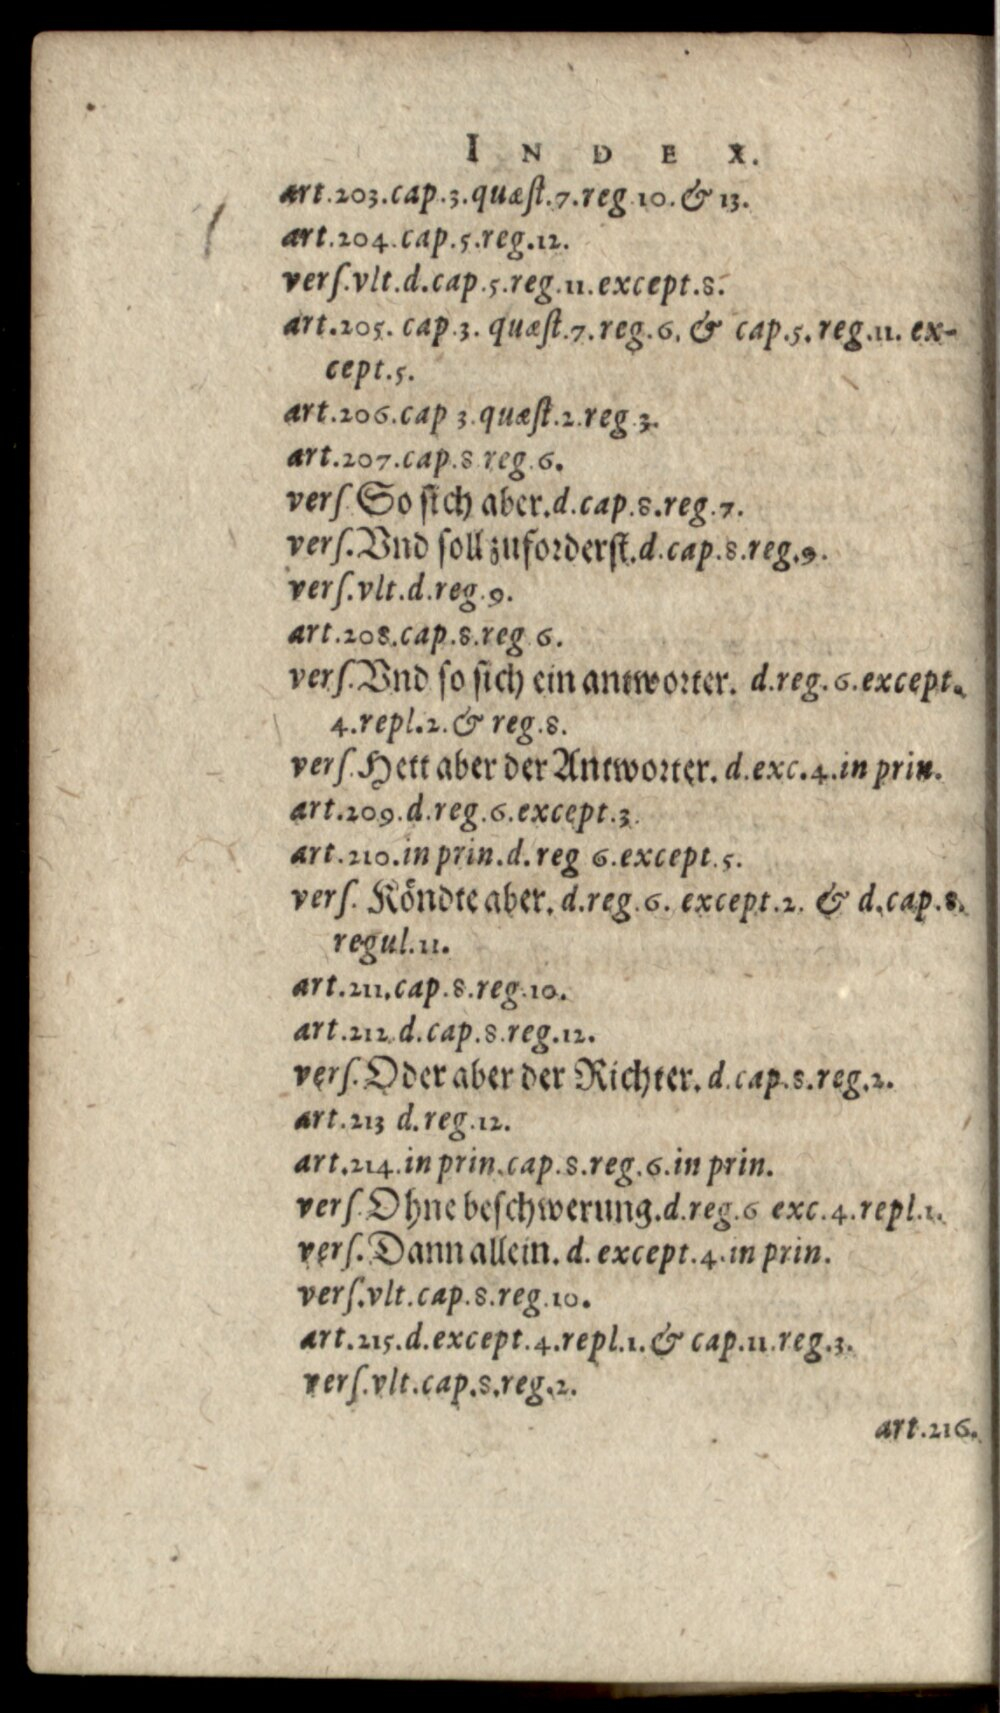 INDEX.
art.203.cap.3.quæſt.7.reg.10.& 13.
art.204.cap.5.reg.12.
verſ.vlt.d.cap.5.reg.11.except.8.
art.205. cap.3. quæſt.7.reg.6. & cap.5.reg.11. ex-
cept.5.
art.206.cap 3.quæſt.2.reg.3.
art.207.cap.8 reg.6.
verſ. So ſich aber.d.cap.8.reg.7.
verſ. Vnd ſoll zuforderſt.d.cap.8.reg.9.
verſ.vlt.d.reg.9.
art.208.cap.8.reg 6.
verſ. Vnd ſo ſich ein antworter. d.reg.6.except.
4.repl.2.& reg.8.
verſ. Hett aber der Antworter. d.exc.4.in prin.
art.209.d.reg.6.except.3.
art.210.in prin.d.reg 6.except.5.
verſ. Köndte aber. d.reg.6. except.2. & d.cap.8.
regul.11.
art.211.cap.8.reg.10.
art.212.d.cap.8.reg.12.
verſ. Oder aber der Richter. d.cap.8.reg.2.
art.213 d.reg.12.
art.214.in prin.cap.8.reg.6.in prin.
verſ. Ohne beſchwerung.d.reg.6 exc.4.repl.1.
verſ. Dann allein. d. except.4.in prin.
verſ.vlt.cap.8.reg.10.
art.215.d.except.4.repl.1.& cap.11.reg.3.
verſ.vlt.cap.8.reg.2.
art.216.